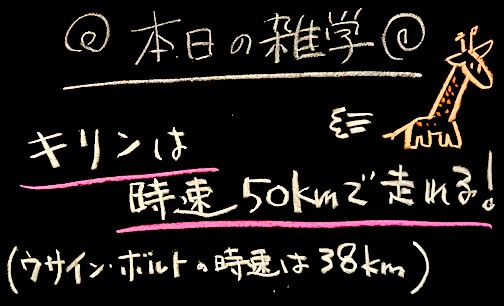 本日の雑学
キリンは
時速50kmで走れる!
(ウサイン・ボルトの時速は38km)